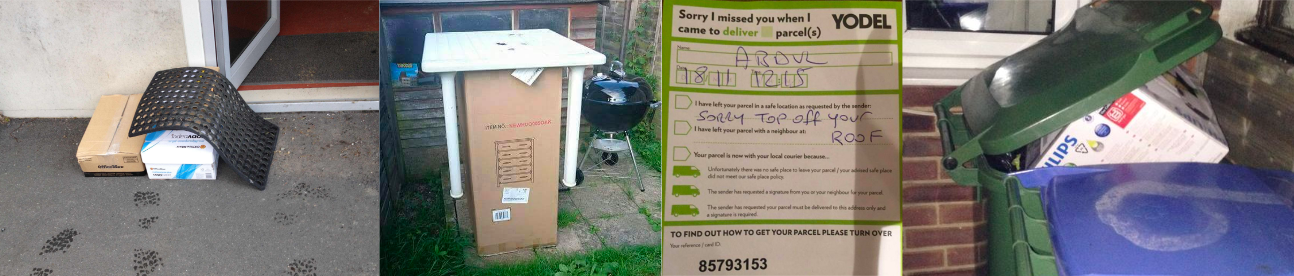 Office Max
Sorry I missed you when I
came to deliver parcel(s)
YODEL
Name
ABDUL
18 11 12 15
I have left your parcel in a safe location as requested by the sender:
SORRY TOP OFF YOUR
I have left your parcel with a neighbour at:
ROOF
Your parcel is now with your local courier because...
Unfortunately there was no safe place to leave your parcel / your advised safe place
did not meet our safe place policy.
The sender has requested a signature from you or your neighbour for your parcel.
The sender has requested your parcel must be delivered to this address only and
a signature is required.
TO FIND OUT HOW TO GET YOUR PARCEL PLEASE TURN OVER
Your reference / card ID:
85793153
PHILIPS